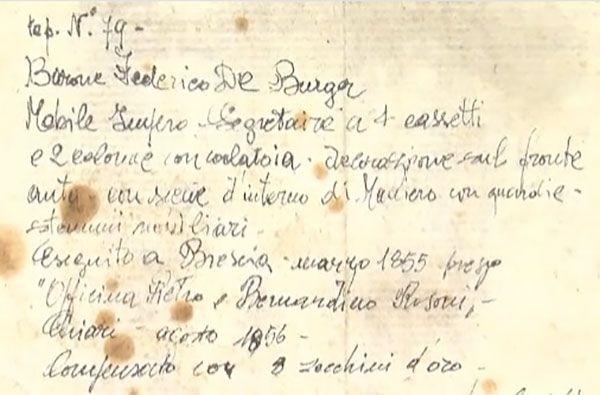 rep. N.° 79 -
Barone Federico De Burger
Mobile Impero - Segretaire a 4 cassetti
e 2 colonne con colatoia - decorazione sul fronte
anta - con scene d'interno di Maniero con guardie -
stemmi nobiliari -
Eseguito a Brescia - marzo 1855 presso
"Officina Pietro e Bernardino Rosoni, -
Chiari - agosto 1856 -
Compensato con 8 zecchini d'oro -